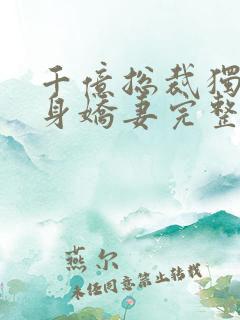 千億總裁獨
身嬌妻完整
燕尔
未经同意禁止转载